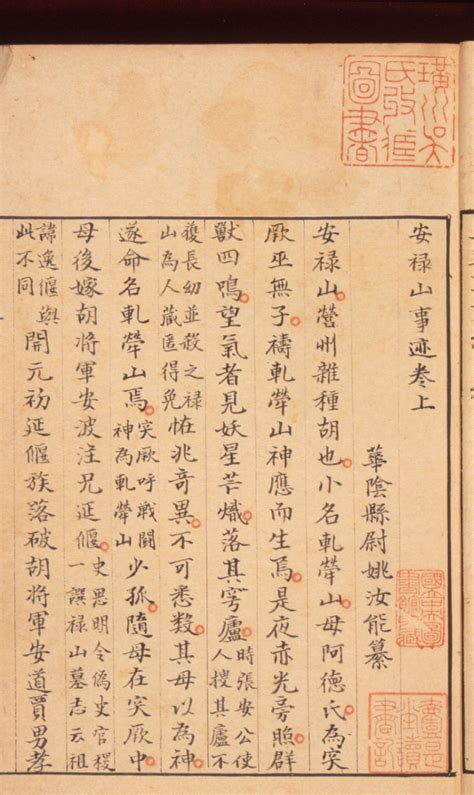 璜川吳
氏收藏
圖書
安禄山事迹卷上
華陰縣尉姚汝能纂
安禄山營州雜種胡也小名軋犖山母阿德氏為突
厥巫無子禱軋犖山神應而生焉是夜赤光旁照群
獸四鳴望氣者見妖星芒熾落其穹廬時張安公使人搜其廬不
獲長幼並殺之禄山為人藏匿得免怪兆奇異不可悉數其母以為神
遂命名軋犖山焉突厥呼戦鬪神為軋犖山少孤隨母在突厥中
母後嫁胡將軍安波注兄延偃史思明令偽史官稷一譔禄山墓志云祖
諱逸偃與此不同開元初延偃族落破胡將軍安道買男孝